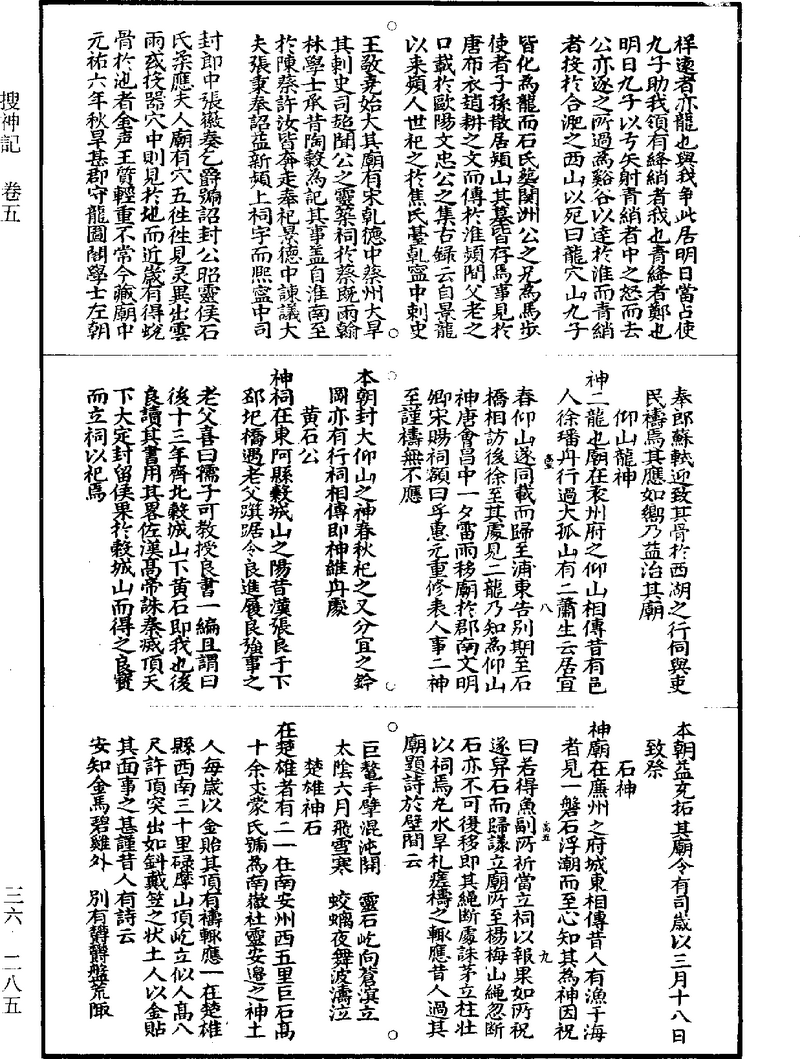 搜神記　卷五
祥遠者亦龍也與我爭此居明日當占使
九子助我領有絳綃者我也青綃者鄭也
明日九子以弓矢射青綃者中之怒而去
公亦逐之所過為谿谷以達於淮而青綃
者投於合淝之西山以死曰龍穴山九子
皆化為龍而石氏塟関洲公之兄為馬步
使者子孫散居頴山其墓皆存焉事見於
唐布衣趙耕之文而傳於淮頴間父老之
口載於歐陽文忠公之集古録云自景龍
以来頴人世祀之於焦氏臺乹寧中刺史
王敬尭始大其廟有宋乾德中蔡州大旱
其刺史司超聞公之靈築祠於蔡既雨翰
林學士承旨陶穀為記其事盖自淮南至
於陳蔡許汝皆奔走奉祀景德中諫議大
夫張秉奉詔益新頴上祠宇而熙寧中司
封郎中張徽奏乞爵號詔封公昭靈侯石
氏柔應夫人廟有穴五徃徃見灵異出雲
雨或投器穴中則見於地而近歲有得蛻
骨於池者金声玉質輕重不常今藏廟中
元祐六年秋旱甚郡守龍圖閣學士左朝
奉郎蘇軾迎致其骨於西湖之行伺與吏
民禱焉其應如嚮乃益治其廟
仰山龍神
神二龍也廟在袁州府之仰山相傳昔有邑
人徐璠舟行過大孤山有二蕭生云居宜
春仰山遂同載而歸至浦東告別期至石
橋相訪後徐至其處見二龍乃知為仰山
神唐會昌中一夕雷雨移廟於郡南文明
卿宋賜祠額曰孚惠元重修表人事二神
至謹禱無不應
本朝封大仰山之神春秋祀之又分宜之鈐
岡亦有行祠相傳即神維舟處
黃石公
神祠在東阿縣穀城山之陽昔漢張良于下
邳圯橋遇老父踑踞令良進履良強事之
老父喜曰孺子可教授良書一編且謂曰
後十三年齊北穀城山下黃石即我也後
良讀其書用其畧佐漢髙帝誅秦滅項天
下大定封留侯果於穀城山而得之良寶
而立祠以祀焉
本朝益充拓其廟令有司歲以三月十八日
致祭
石神
神廟在廉州之府城東相傳昔人有漁于海
者見一磐石浮潮而至心知其為神因祝
曰若得魚副所祈當立祠以報果如所祝
遂舁石而歸謀立廟所至楊梅山繩忽断
石亦不可復移即其繩断處誅茅立柱壮
以祠焉凡水旱札瘥禱之輒應昔人過其
廟題詩於壁間云
巨鰲手擘混沌開　靈石屹向蒼溟立
太陰六月飛雪寒　蛟螭夜舞波濤泣
楚雄神石
在楚雄者有二一在南安州西五里巨石高
十余丈蒙氏號為南嶽社靈安邊之神土
人每歲以金貽其頂有禱輒應一在楚雄
縣西南三十里碌摩山頂屹立似人高八
尺許頂突出如斜戴笠之状土人以金貼
其面事之甚謹昔人有詩云
安知金馬碧雞外　別有欝欝盤荒陬
三六·二八五